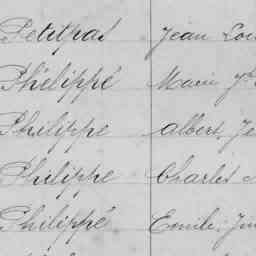 Petitpas Jean Lou
Phélippé Marie Jh
Philippe Albert Je
Philippe Charles
Philippé Emile Jn